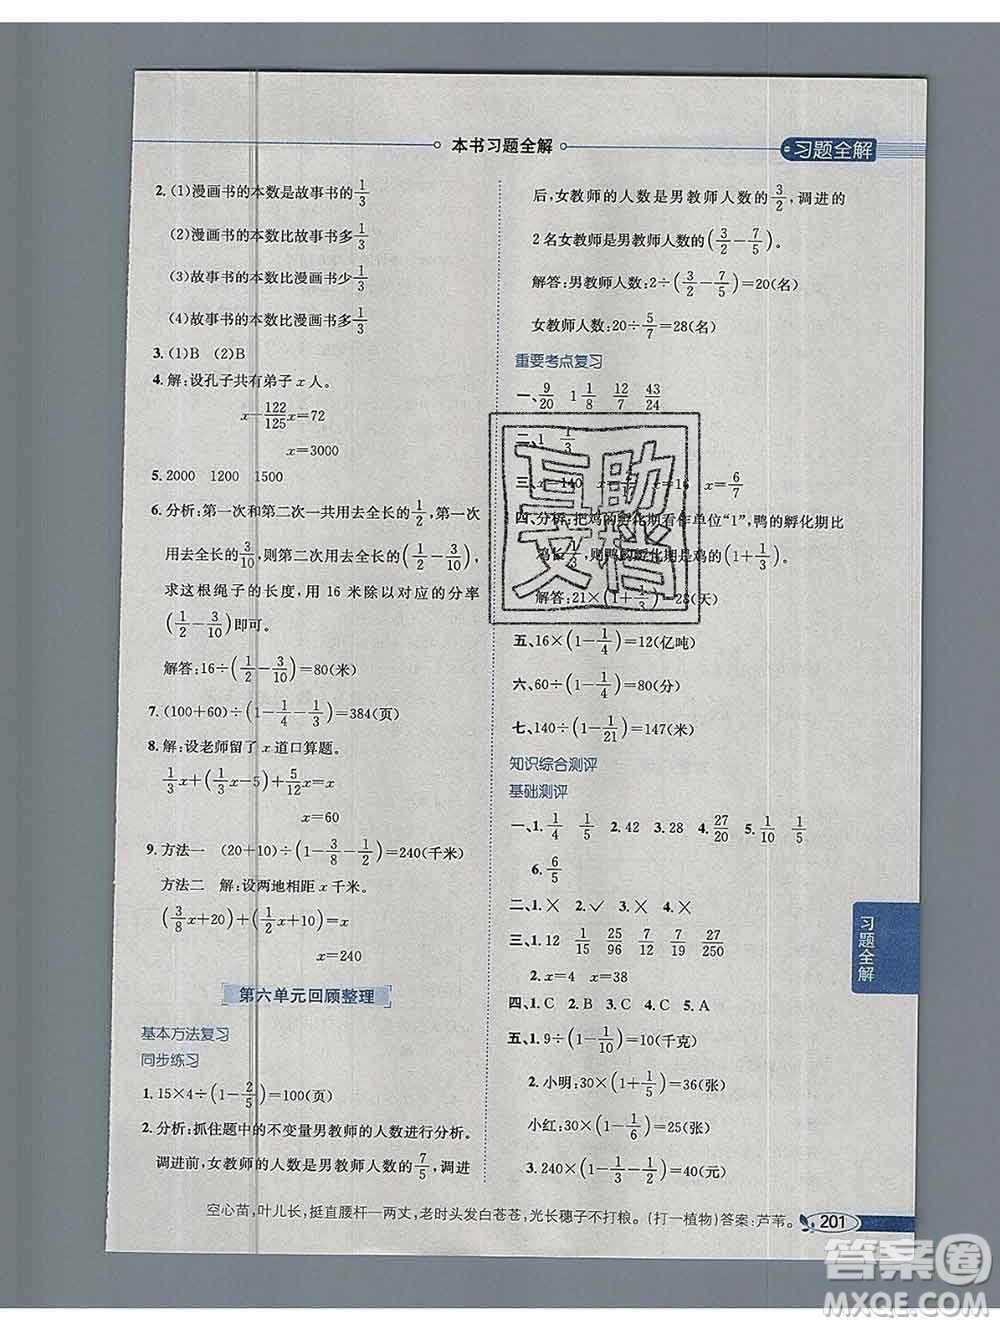 本书习题全解
习题全解
2. (1)漫画书的本数是故事书的1/3
(2)漫画书的本数比故事书多1/3
(3)故事书的本数比漫画书少1/3
(4)故事书的本数比漫画书多1/3
3. (1)B (2)B
4. 解:设孔子共有弟子 x 人。
x-122/125x=72
x=3000
5. 2000 1200 1500
6. 分析:第一次和第二次一共用去全长的1/2,第一次
用去全长的3/10,则第二次用去全长的(1/2-3/10),
求这根绳子的长度,用 16 米除以对应的分率
(1/2-3/10)即可。
解答:16÷(1/2-3/10)=80(米)
7. (100+60)÷(1-1/4-1/3)=384(页)
8. 解:设老师留了 x 道口算题。
1/3x+(1/3x-5)+5/12x=x
x=60
9. 方法一 (20+10)÷(1-3/8-1/2)=240(千米)
方法二 解:设两地相距 x 千米。
(3/8x+20)+(1/2x+10)=x
x=240
第六单元回顾整理
基本方法复习
同步练习
1. 15×4÷(1-2/5)=100(页)
2. 分析:抓住题中的不变量男教师的人数进行分析。
调进前,女教师的人数是男教师人数的7/5,调进
后,女教师的人数是男教师人数的3/2,调进的
2名女教师是男教师人数的(3/2-7/5)。
解答:男教师人数:2÷(3/2-7/5)=20(名)
女教师人数:20÷5/7=28(名)
重要考点复习
一、9/20 1 1/8 12/7 43/24
二、1 1/3
三、x=140 x=16 x=6/7
四、分析:把鸡的孵化期看作单位“1”,鸭的孵化期比
鸡长1/3,则鸭的孵化期是鸡的(1+1/3)。
解答:21×(1+1/3)=28(天)
五、16×(1-1/4)=12(亿吨)
六、60÷(1-1/4)=80(分)
七、140÷(1-1/21)=147(米)
知识综合测评
基础测评
一、1. 1/4 1/5 2. 42 3. 28 4. 27/20 5. 1/10 1/5
6. 6/5
二、1. × 2. ✓ 3. × 4. ×
三、1. 12 1/15 25/96 7/12 7/9 27/250
2. x=4 x=38
四、1. C 2. B 3. C 4. C 5. A
五、1. 9÷(1-1/10)=10(千克)
2. 小明:30×(1+1/5)=36(张)
小红:30×(1-1/6)=25(张)
3. 240×(1-1/3-1/2)=40(元)
习题全解
空心苗,叶儿长,挺直腰杆一两丈,老时头发白苍苍,光长穗子不打粮。(打一植物)答案:芦苇。
201
互助
文档
答案圈
MXQE.COM